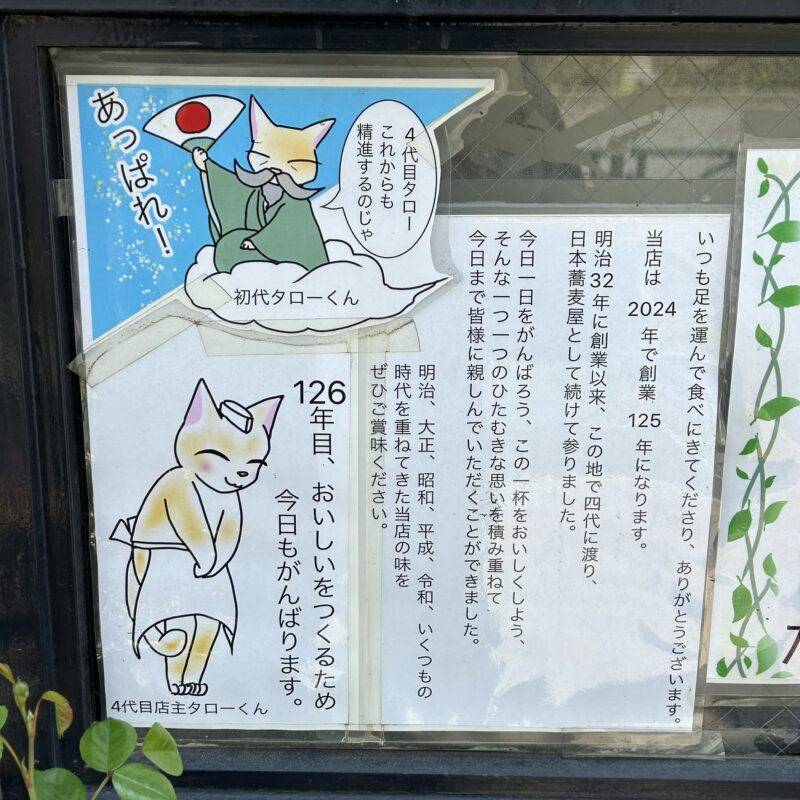 あっぱれ！
4代目タロー
これからも
精進するのじゃ
初代タローくん
いつも足を運んで食べにきてくださり、ありがとうございます。
当店は 2024 年で創業 125 年になります。
明治32年に創業以来、この地で四代に渡り、
日本蕎麦屋として続けて参りました。
今日一日をがんばろう、この一杯をおいしくしよう、
そんな一つ一つのひたむきな思いを積み重ねて
今日まで皆様に親しんでいただくことができました。
明治、大正、昭和、平成、令和、いくつもの
時代を重ねてきた当店の味を
ぜひご賞味ください。
126年目、おいしいをつくるため
今日もがんばります。
4代目店主タローくん